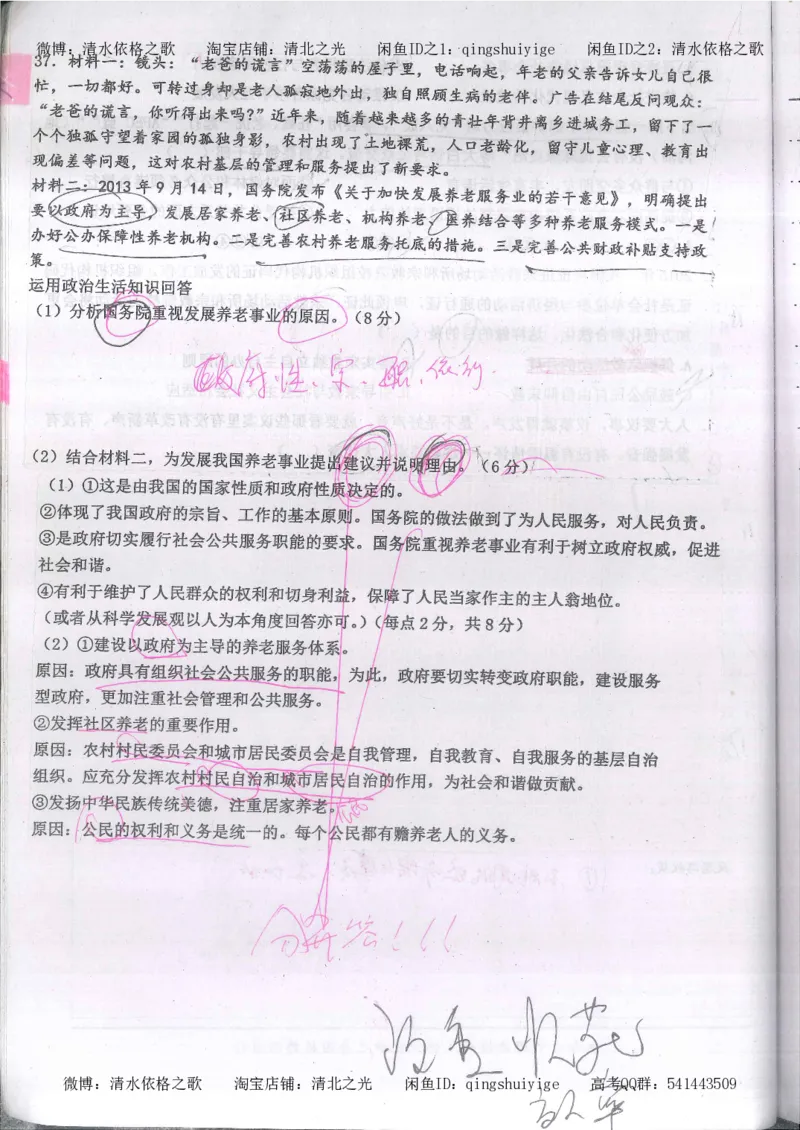 微博：清水依格之歌　　淘宝店铺：清北之光　　闲鱼ID之1：qingshuiyige　　闲鱼ID之2：清水依格之歌
37．材料一：镜头：“老爸的谎言”空荡荡的屋子里，电话响起，年老的父亲告诉女儿自己很
忙，一切都好。可转过身却是老人孤寂地外出，独自照顾生病的老伴。广告在结尾反问观众：
“老爸的谎言，你听得出来吗?”近年来，随着越来越多的青壮年背井离乡进城务工，留下了一
个个独孤守望着家园的孤独身影，农村出现了土地裸荒，人口老龄化，留守儿童心理、教育出
现偏差等问题，这对农村基层的管理和服务提出了新要求。
材料二：2013年9月14日，国务院发布《关于加快发展养老服务业的若干意见》，明确提出
要以政府为主导，发展居家养老、社区养老、机构养老、医养结合等多种养老服务模式。一是
办好公办保障性养老机构。二是完善农村养老服务托底的措施。三是完善公共财政补贴支持政
策。
运用政治生活知识回答
（1）分析国务院重视发展养老事业的原因。（8分）
政府性、宗、职、依行.
（2）结合材料二，为发展我国养老事业提出建议并说明理由。（6分）
（1）①这是由我国的国家性质和政府性质决定的。
②体现了我国政府的宗旨、工作的基本原则。国务院的做法做到了为人民服务，对人民负责。
③是政府切实履行社会公共服务职能的要求。国务院重视养老事业有利于树立政府权威，促进
社会和谐。
④有利于维护了人民群众的权利和切身利益，保障了人民当家作主的主人翁地位。
（或者从科学发展观以人为本角度回答亦可。）（每点2分，共8分）
（2）①建设以政府为主导的养老服务体系。
原因：政府具有组织社会公共服务的职能，为此，政府要切实转变政府职能，建设服务
型政府，更加注重社会管理和公共服务。
②发挥社区养老的重要作用。
原因：农村村民委员会和城市居民委员会是自我管理，自我教育、自我服务的基层自治
组织。应充分发挥农村村民自治和城市居民自治的作用，为社会和谐做贡献。
③发扬中华民族传统美德，注重居家养老。
原因：公民的权利和义务是统一的。每个公民都有赡养老人的义务。
分开答！！！
微博：清水依格之歌　　淘宝店铺：清北之光　　闲鱼ID：qingshuiyige　　高考QQ群：541443509